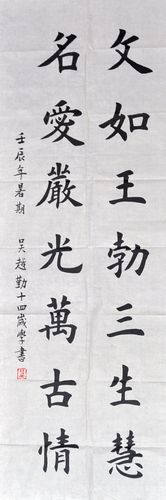 文如王勃三生慧
名愛嚴光萬古情
壬辰年暑期 吴趙勤十四歲學書